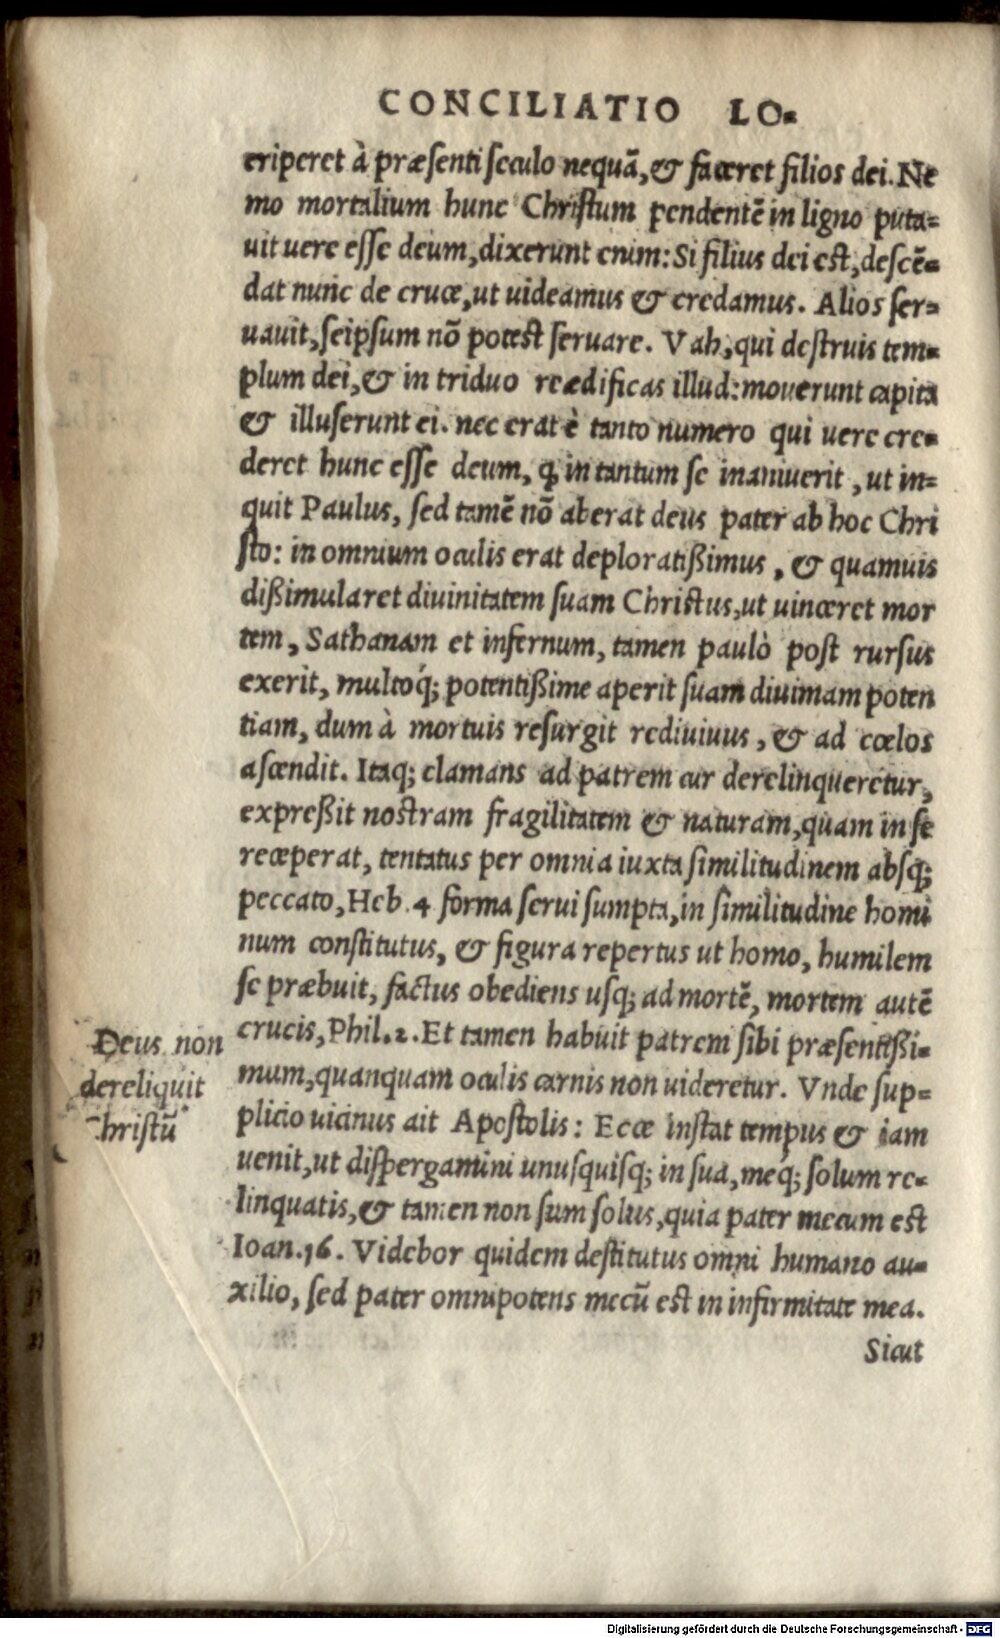 CONCILIATIO LO-
eriperet à præsenti seculo nequã, & faceret filios dei. Ne
mo mortalium hunc Christum pendentẽ in ligno puta-
uit uere esse deum, dixerunt enim: Si filius dei est, descẽ-
dat nunc de cruce, ut uideamus & credamus. Alios ser-
uauit, seipsum nõ potest seruare. Vah, qui destruis tem-
plum dei, & in triduo reædificas illud: mouerunt capita
& illuserunt ei. nec erat è tanto numero qui uere cre-
deret hunc esse deum, ꝙ in tantum se inaniuerit, ut in-
quit Paulus, sed tamẽ nõ aberat deus pater ab hoc Chri
sto: in omnium oculis erat deploratißimus, & quamuis
dißimularet diuinitatem suam Christus, ut uinceret mor
tem, Sathanam et infernum, tamen paulò post rursus
exerit, multoq́; potentißime aperit suam diuinam poten
tiam, dum à mortuis resurgit rediuiuus, & ad cœlos
ascendit. Itaq; clamans ad patrem cur derelinqueretur,
expreßit nostram fragilitatem & naturam, quam in se
receperat, tentatus per omnia iuxta similitudinem absq;
peccato, Heb. 4 forma serui sumpta, in similitudine homi
num constitutus, & figura repertus ut homo, humilem
se præbuit, factus obediens usq; ad mortẽ, mortem autẽ
crucis, Phil. 2. Et tamen habuit patrem sibi præsentißi-
mum, quanquam oculis carnis non uideretur. Vnde sup-
plicio uicinus ait Apostolis: Ecce instat tempus & iam
uenit, ut dispergamini unusquisq; in sua, meq́; solum re-
linquatis, & tamen non sum solus, quia pater mecum est
Ioan. 16. Videbor quidem destitutus omni humano au-
xilio, sed pater omnipotens mecũ est in infirmitate mea.
Sicut
Deus non
dereliquit
Christũ
Digitalisierung gefördert durch die Deutsche Forschungsgemeinschaft - DFG